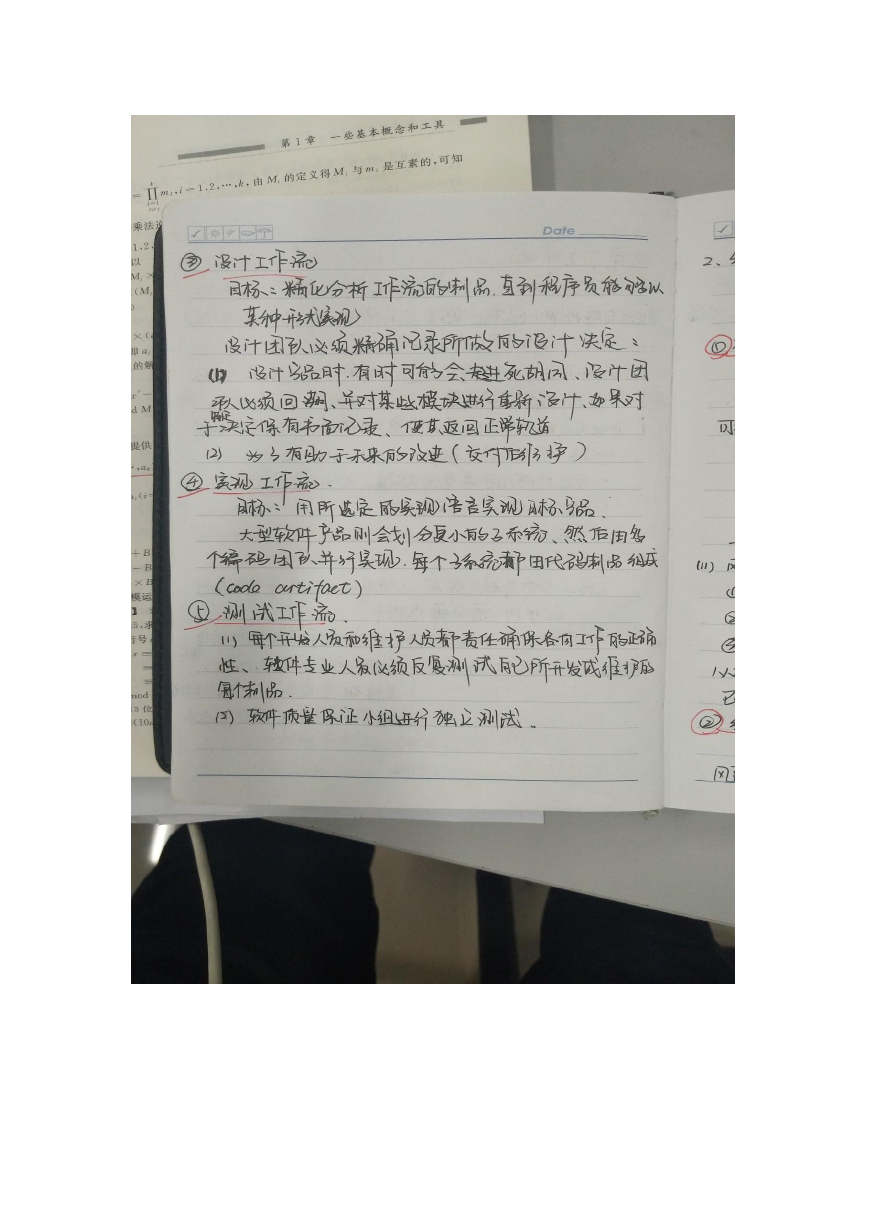 第1章 一些基本概念和工具
=∏mⱼ,i=1,2,…,k,由Mᵢ的定义得Mᵢ与mᵢ是互素的,可知
乘法
Date
③ 设计工作流
目标:精化分析工作流的制品.直到程序员能够以
某种形式实现
设计团队必须精确记录所做的设计决定:
(1) 设计产品时.有时可能会走进死胡同、设计团
队必须回溯、并对某些模块进行重新设计、如果对
于决定保有书面记录、使其返回正常轨道
(2) 为了有助于未来的改进(交付后维护)
④ 实现工作流.
目标:用所选定的实现语言实现目标产品.
大型软件产品则会划分更小的子系统、然后由多
个编码团队并行实现.每个子系统都由代码制品组成
(code artifact)
⑤ 测试工作流.
(1) 每个开发人员和维护人员都责任确保各自工作的正确
性、软件专业人员必须反复测试自己所开发或维护的
每个制品.
(2) 软件质量保证小组进行独立测试.
2、
①
(1)
①
②
③
②